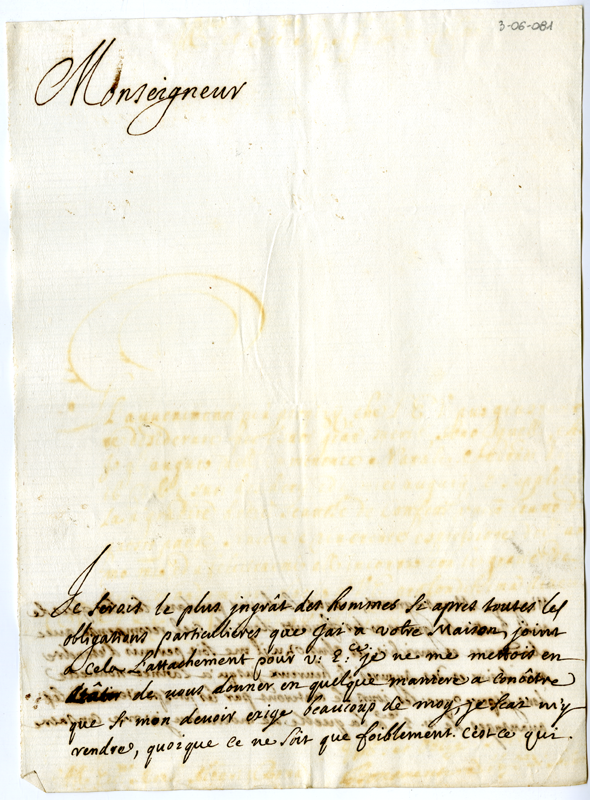 3-06-081
Monseigneur
Je serait le plus jngrât des hommes si apres toutes les
obligations particulieres que j'ai a votre Maison, joint
a cela L'attachement pour v: E:ce je ne me mettois en
êtât de vous donner en quelque maniere a conoêtre
que si mon devoir exige beaucoup de moy, je scai m'y
rendre, quoique ce ne soit que foiblement. c'est ce qui.